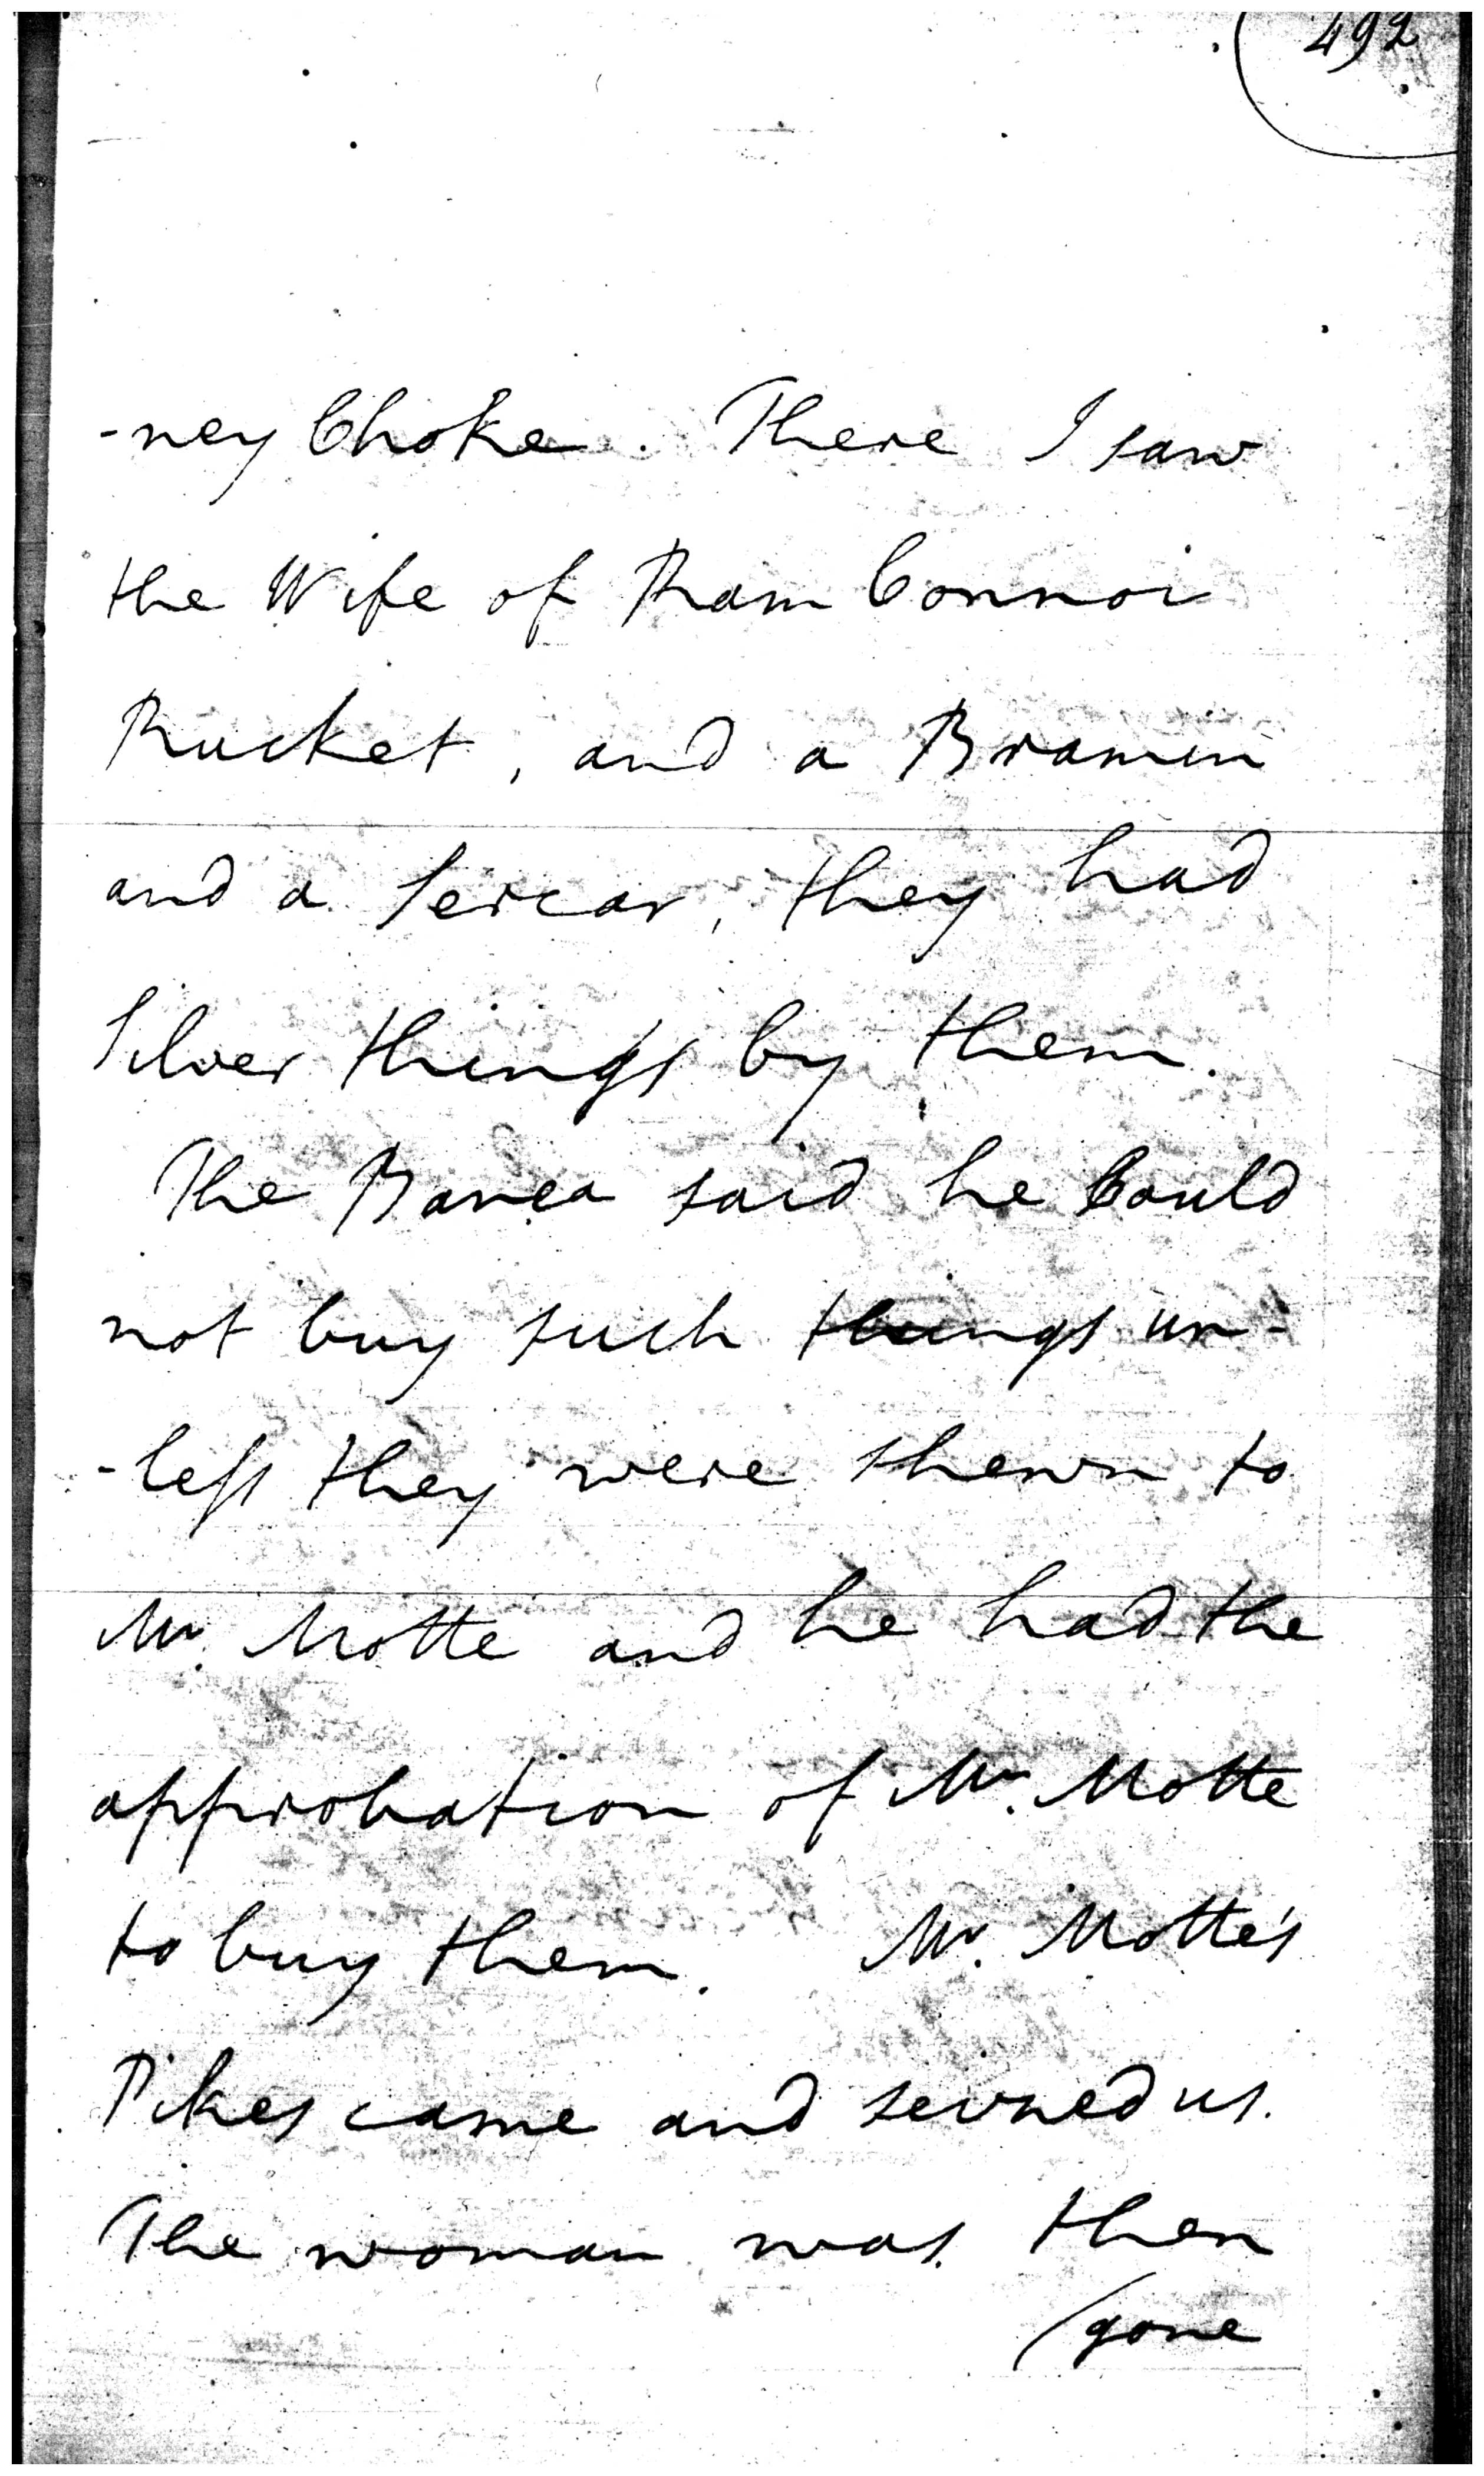 492
-ney Choke. There I saw
the Wife of Ram Connoi
Rucket, and a Bramin
and a Sercar, they had
Silver things by them.
The Banea said he Could
not buy such things un-
-less they were shewn to
Mr. Motte and he had the
approbation of Mr. Motte
to buy them. Mr. Motte's
Pikes came and serned us.
The woman was then
gone